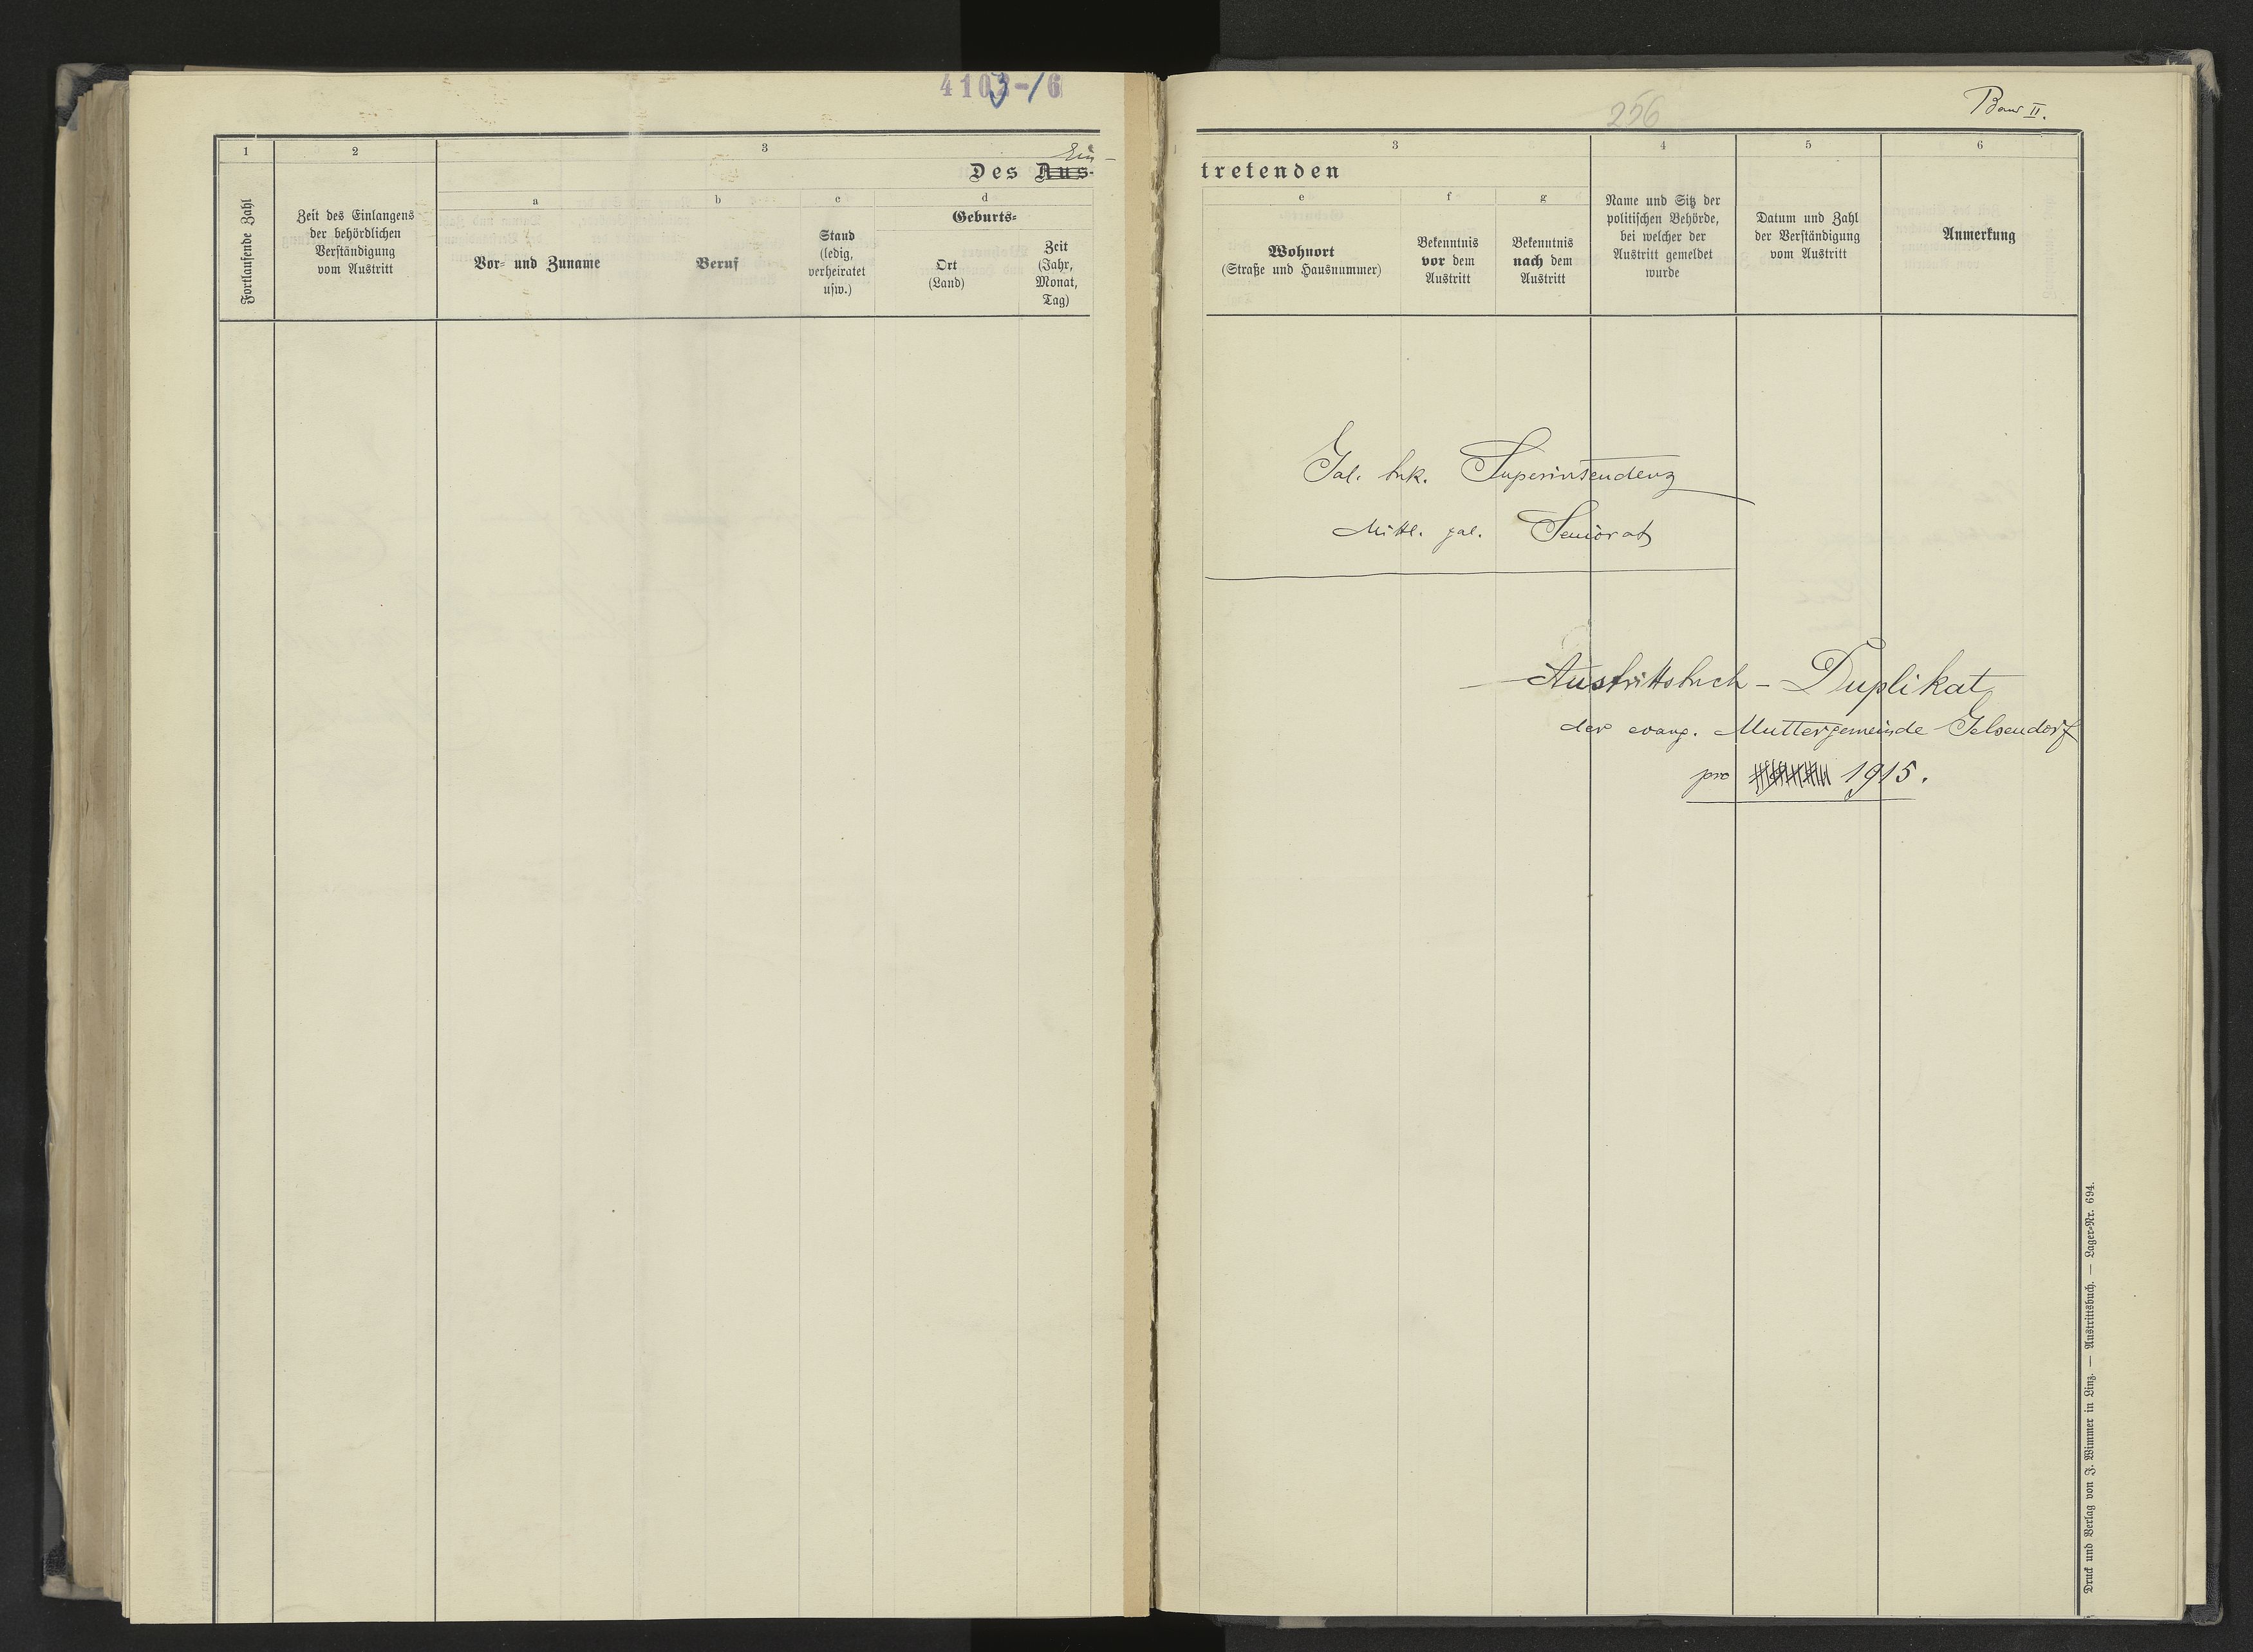 4103-/6
1
2
3
Ein-
Des Aus-
Fortlaufende Zahl
Zeit des Einlangens
der behördlichen
Verständigung
vom Austritt
a
Vor- und Zuname
b
Beruf
c
Stand
(ledig,
verheiratet
usw.)
d
Geburts-
Ort
(Land)
Zeit
(Jahr,
Monat,
Tag)
256
II.
3
4
5
6
tretenden
e
Wohnort
(Straße und Hausnummer)
f
Bekenntnis
vor dem
Austritt
g
Bekenntnis
nach dem
Austritt
Name und Sitz der
politischen Behörde,
bei welcher der
Austritt gemeldet
wurde
Datum und Zahl
der Verständigung
vom Austritt
Anmerkung
Gal. buk. Superintendenz
Mittl. gal. Seniorat
Austrittsbuch - Duplikat
der evang. Muttergemeinde Gelsendorf
pro 1915.
Druck und Verlag von J. Wimmer in Linz. — Austrittsbuch. — Lager-Nr. 694.